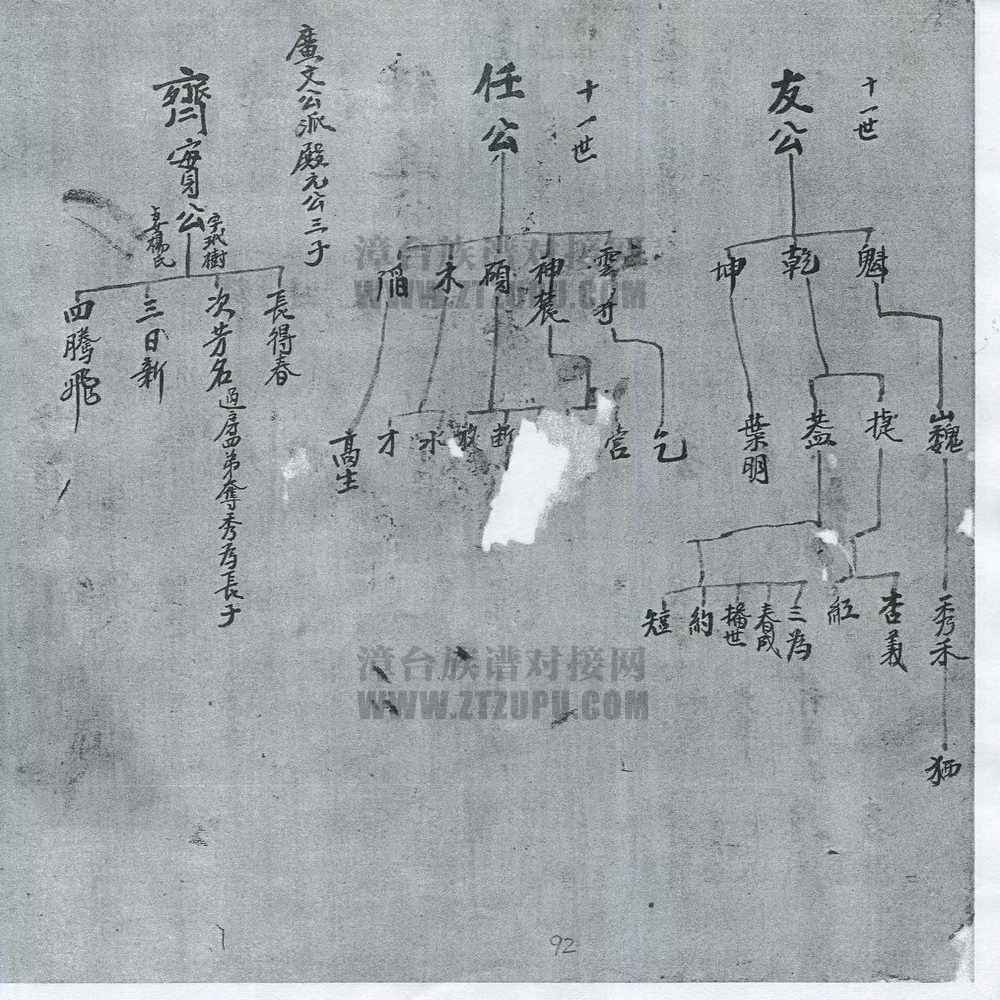 十一世
友公
魁
乾
坤
巍
捷
蓋
葉明
秀禾
杏義
紅
三為
春成
播世
約
短
猫
十一世
任公
雲
神農
碩
木
稻
乞
宮
断
放
水
才
高生
廣文公派殿元公三子
齊賓公
字玳樹
妻楊氏
長得春
次芳名過房四弟奪秀為長子
三日新
四騰飛
漳台族谱对接网
WWW.ZTZUPU.COM
漳台族谱对接网
WWW.ZTZUPU.COM
92